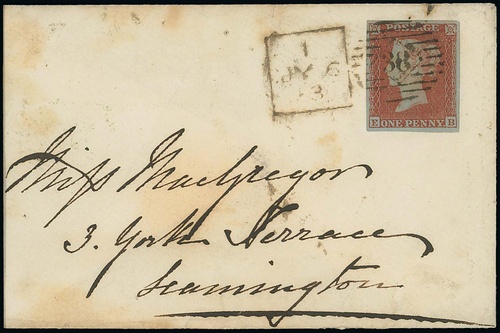 1
JY 6
POSTAGE
38
E ONE PENNY B
Miss MacGregor
3. York Terrace
Leamington